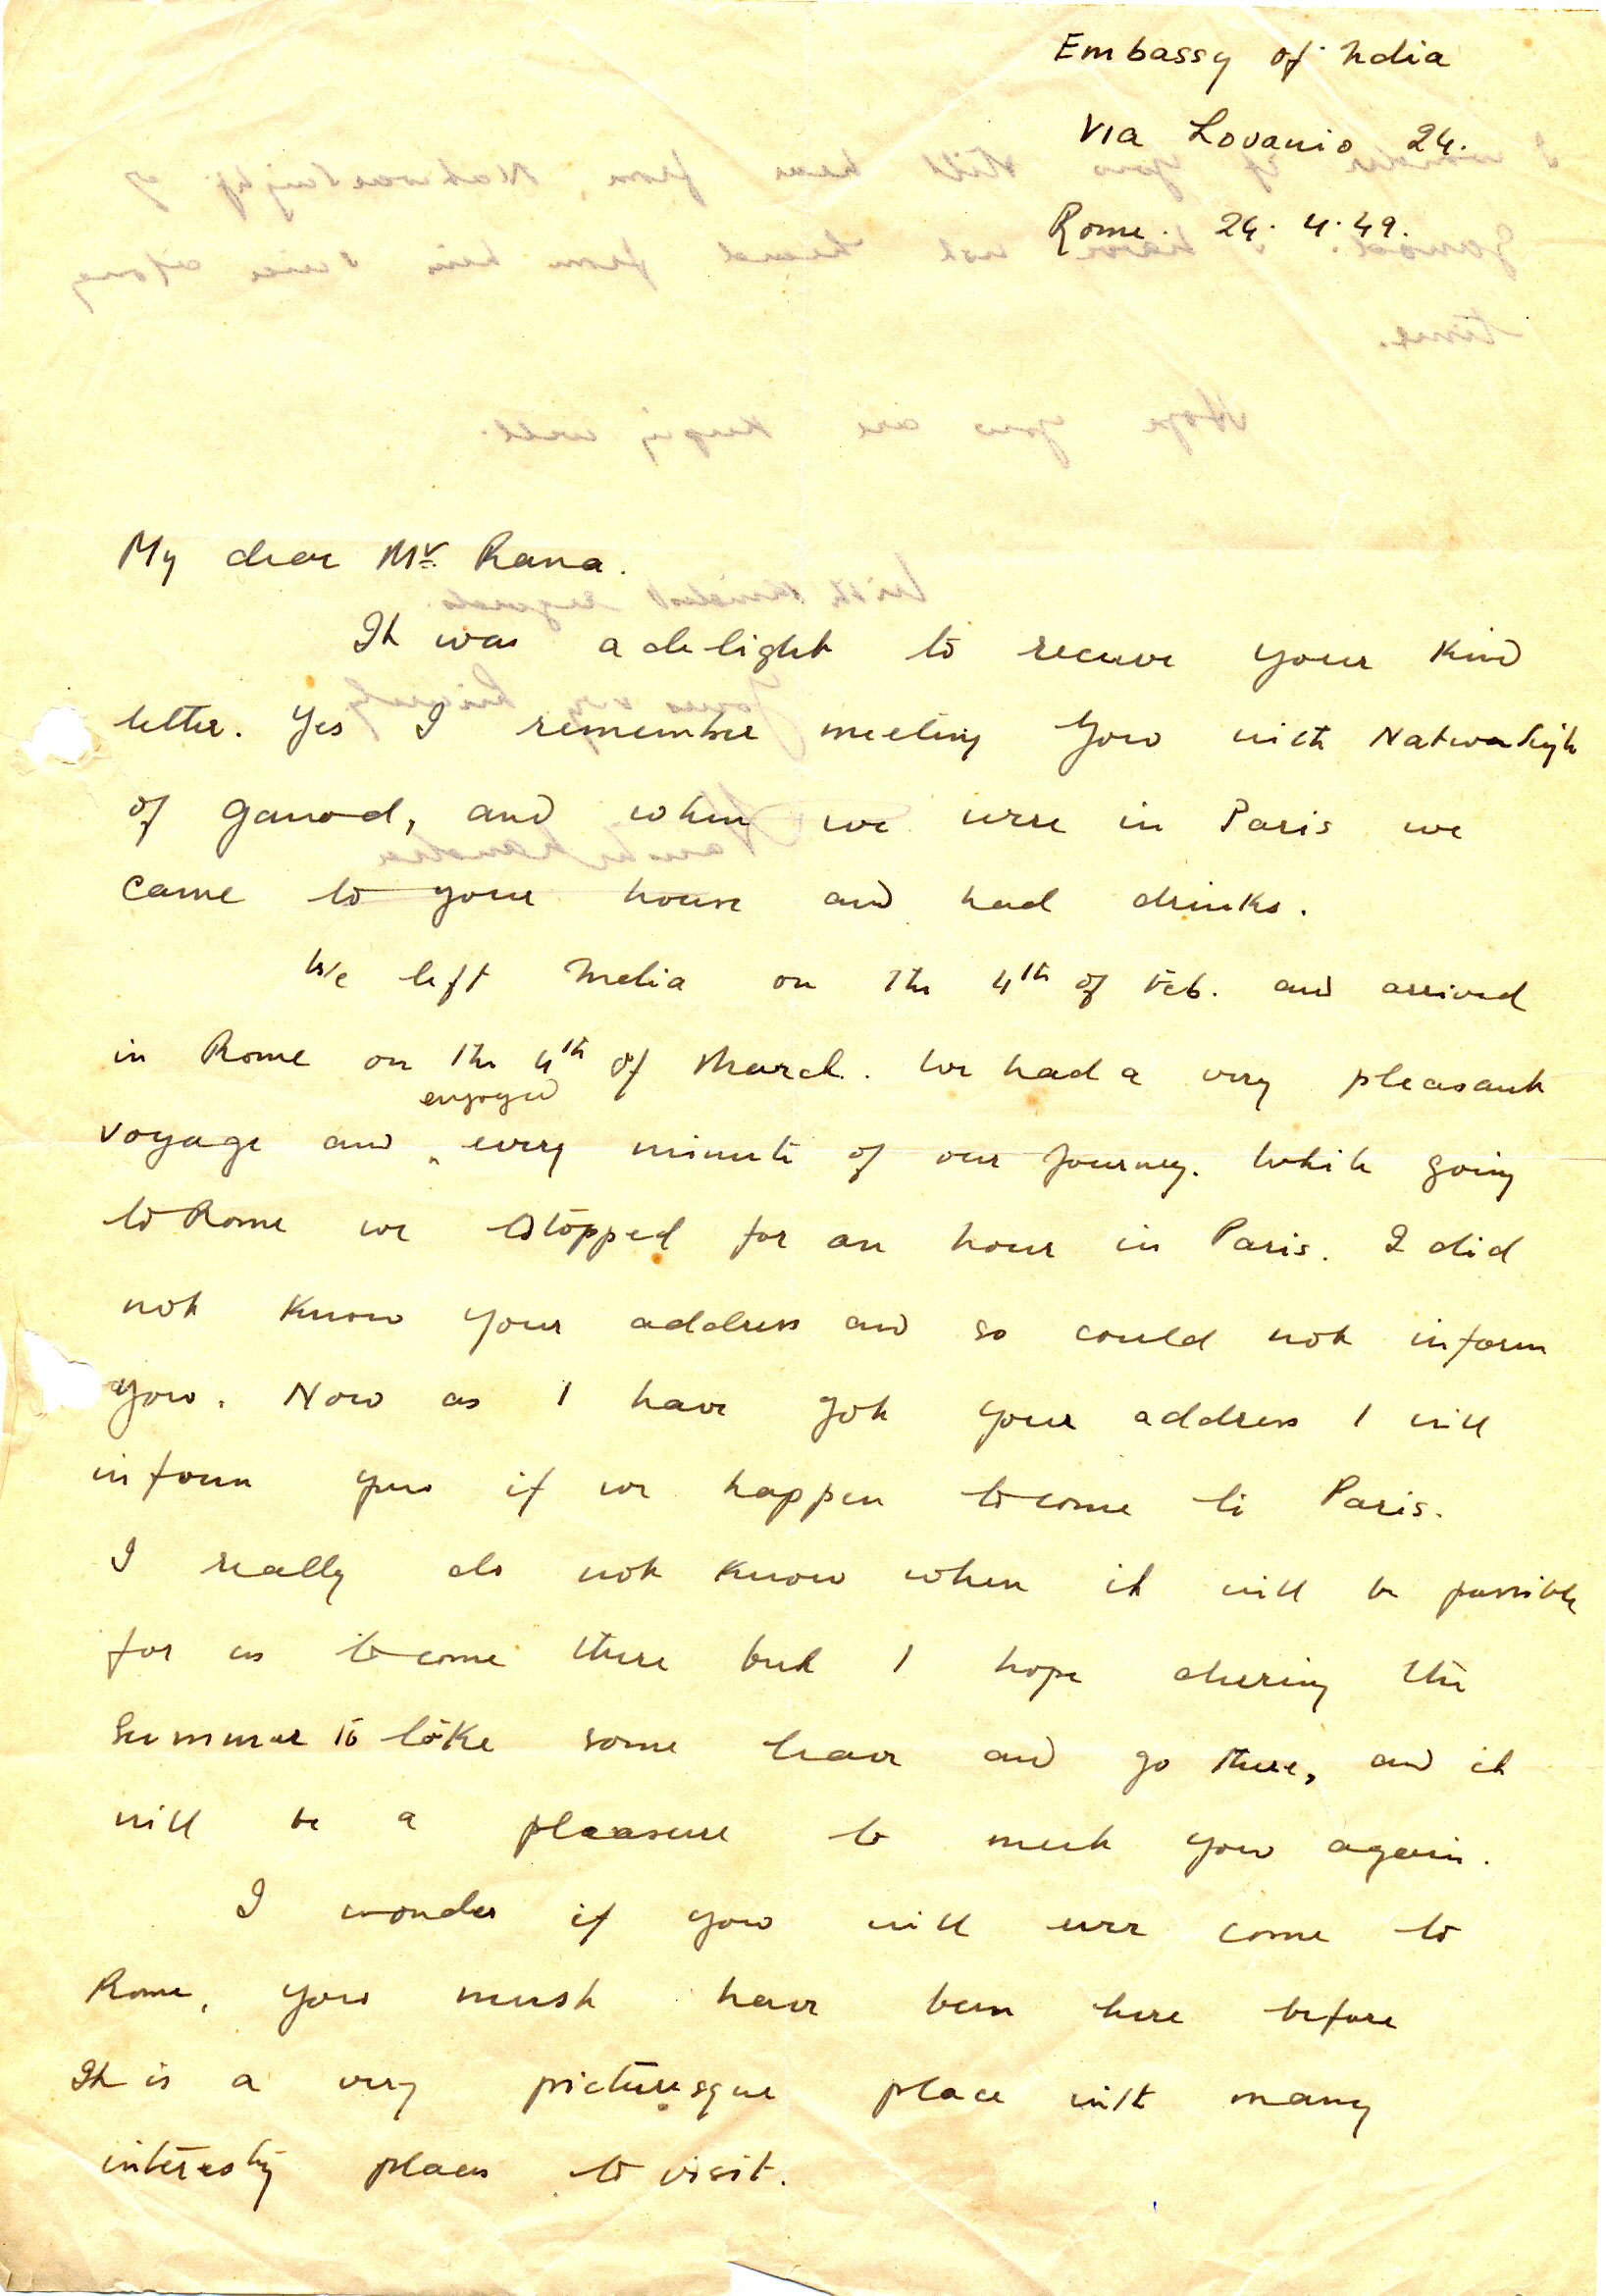 Embassy of India
Via Lovanio 24.
Rome. 24. 4. 49.
My dear Mr. Rana.
It was a delight to receive your kind
letter. Yes I remember meeting you with
of Ganod, and when we were in Paris we
came to your house and had drinks.
We left India on the 4th of Feb. and arrived
in Rome on the 4th of March. We had a very pleasant
enjoyed
voyage and every minute of our journey. While going
to Rome we stopped for an hour in Paris. I did
not know your address and so could not inform
you. Now as I have got your address I will
inform you if we happen to come to Paris.
I really do not know when it will be possible
for us to come there but I hope during the
Summer to take some leave and go there, and it
will be a pleasure to meet you again.
I wonder if you will ever come to
Rome, you must have been here before
It is a very picturesque place with many
interesting places to visit.
I wonder if you still hear from
Ganod. I have not heard from him since a long
time.
Hope you are keeping well.
With kindest regards.
Yours very sincerely